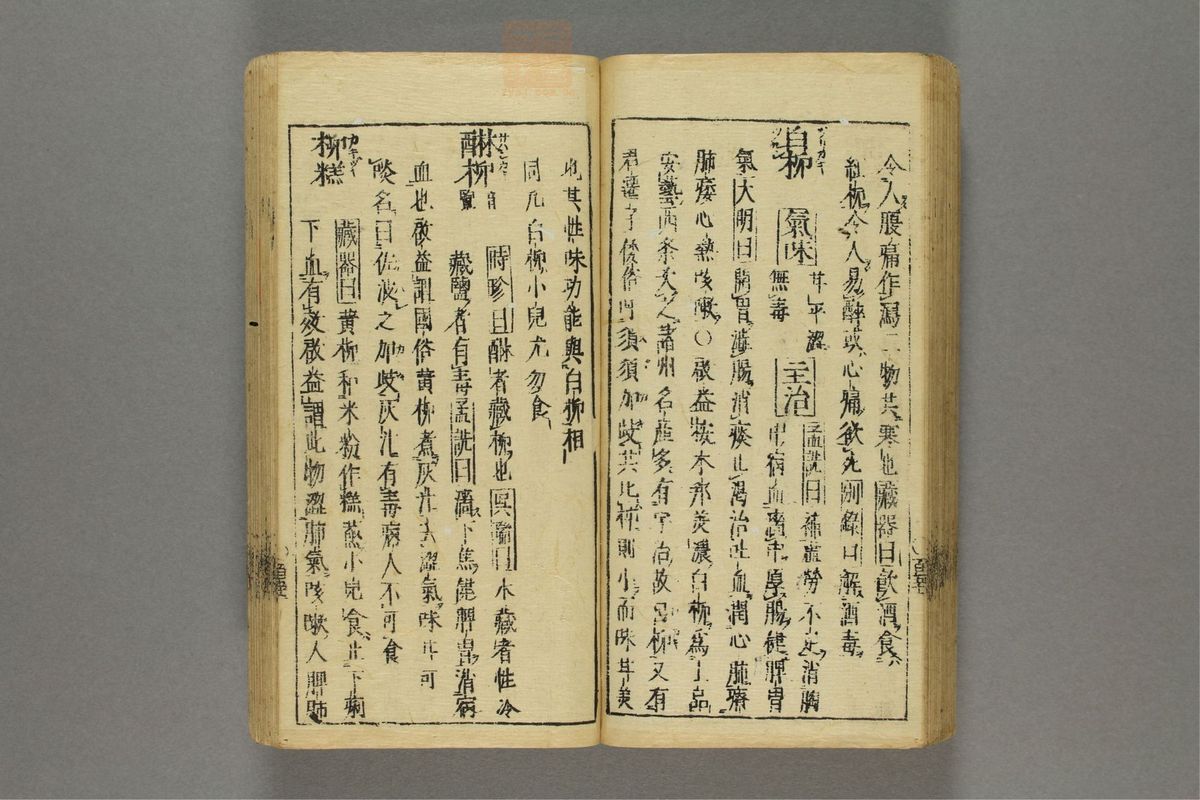 令人腹痛作瀉二物共寒也藏器曰飲酒食
紅柿令人易醉或心痛欲死別錄曰解酒毒
白柿 氣味 甘平澀無毒 主治 孟詵曰補虛勞不足消腹中宿血澀中厚腸健脾胃
氣大明曰開胃澀腸消痰止渴治吐血潤心肺療
肺痿心熱咳嗽〇啟益按本邦美濃白柿為上品
安藝西条次之諸州名產多有宇治故宮柿又有
君遷子倭俗呼須須加岐其比柿則小而味甘美
也其性味功能與白柿相
同凡白柿小兒尤勿食
醂柿 音覽 時珍曰醂者藏柿也吳瑞曰水藏者性冷
藏鹽者有毒孟詵曰澀下焦健脾胃消宿
血也啟益謂國俗黄柿煮灰汁去澀氣味甘可
啖名曰佐波之加岐灰汁有毒病人不可食
柿糕 藏器曰黄柿和米粉作糕蒸小兒食止下痢
下血有效啟益謂此物澀肺氣咳嗽人脾肺